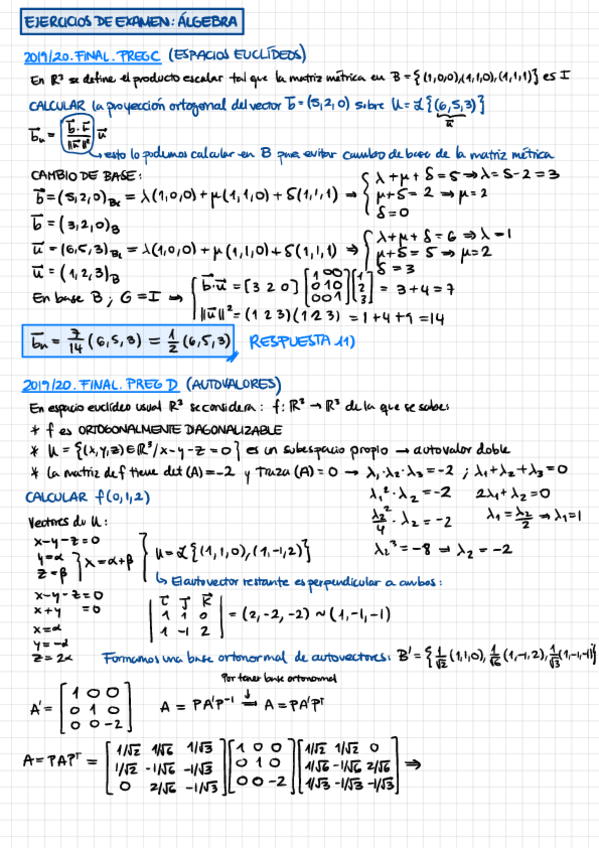 EJERCICIOS DE EXAMEN: ÁLGEBRA
2019/20. FINAL. PREG C (ESPACIOS EUCLÍDEOS)
En R³ se define el producto escalar tal que la matriz métrica en B = {(1,0,0),(1,1,0),(1,1,1)} es I
CALCULAR la proyección ortogonal del vector b⃗ = (5,2,0) sobre U = L{(6,5,3)}
u⃗
b⃗ᵤ = (b⃗·u⃗ / ||u⃗||²) u⃗
↳ esto lo podemos calcular en B para evitar cambio de base de la matriz métrica
CAMBIO DE BASE:
b⃗ = (5,2,0)Bc = λ(1,0,0) + μ(1,1,0) + δ(1,1,1) → { λ + μ + δ = 5 ⇒ λ = 5-2 = 3
μ + δ = 2 ⇒ μ = 2
δ = 0
b⃗ = (3,2,0)B
u⃗ = (6,5,3)Bc = λ(1,0,0) + μ(1,1,0) + δ(1,1,1) ⇒ { λ + μ + δ = 6 ⇒ λ = 1
μ + δ = 5 ⇒ μ = 2
δ = 3
u⃗ = (1,2,3)B
En base B; G = I ⇒ { b⃗·u⃗ = [3 2 0] [1 0 0; 0 1 0; 0 0 1] [1; 2; 3] = 3+4 = 7
||u⃗||² = (1 2 3)(1 2 3) = 1+4+9 = 14
b⃗ᵤ = 7/14 (6,5,3) = 1/2 (6,5,3) RESPUESTA 11)
2019/20. FINAL. PREG D (AUTOVALORES)
En espacio euclídeo usual R³ se considera: f: R³ → R³ de la que se sabe:
* f es ORTOGONALMENTE DIAGONALIZABLE
* U = {(x,y,z) ∈ R³ / x-y-z = 0} es un subespacio propio → autovalor doble
* La matriz de f tiene det(A) = -2 y traza(A) = 0 → λ₁·λ₂·λ₃ = -2 ; λ₁+λ₂+λ₃ = 0
CALCULAR f(0,1,2)
λ₁²·λ₂ = -2 2λ₁+λ₂ = 0
λ₂²/4 · λ₂ = -2 λ₁ = λ₂/2 ⇒ λ₁ = 1
λ₂³ = -8 ⇒ λ₂ = -2
Vectores de U:
x-y-z = 0
y = α
z = β
} x = α+β } U = L{(1,1,0),(1,-1,2)}
↳ El autovector restante es perpendicular a ambos:
x-y-z = 0
x+y = 0
x = α
y = -α
z = 2α
| i⃗ j⃗ k⃗ |
| 1 1 0 | = (2,-2,-2) ~ (1,-1,-1)
| 1 -1 2 |
Formamos una base ortonormal de autovectores: B' = {1/√2 (1,1,0), 1/√6 (1,-1,2), 1/√3 (1,-1,-1)}
Por tener base ortonormal
A' = [1 0 0; 0 1 0; 0 0 -2] A = PA'P⁻¹ → A = PA'Pᵀ
A = PAPᵀ = [1/√2 1/√6 1/√3; 1/√2 -1/√6 -1/√3; 0 2/√6 -1/√3] [1 0 0; 0 1 0; 0 0 -2] [1/√2 1/√2 0; 1/√6 -1/√6 2/√6; 1/√3 -1/√3 -1/√3] ⇒